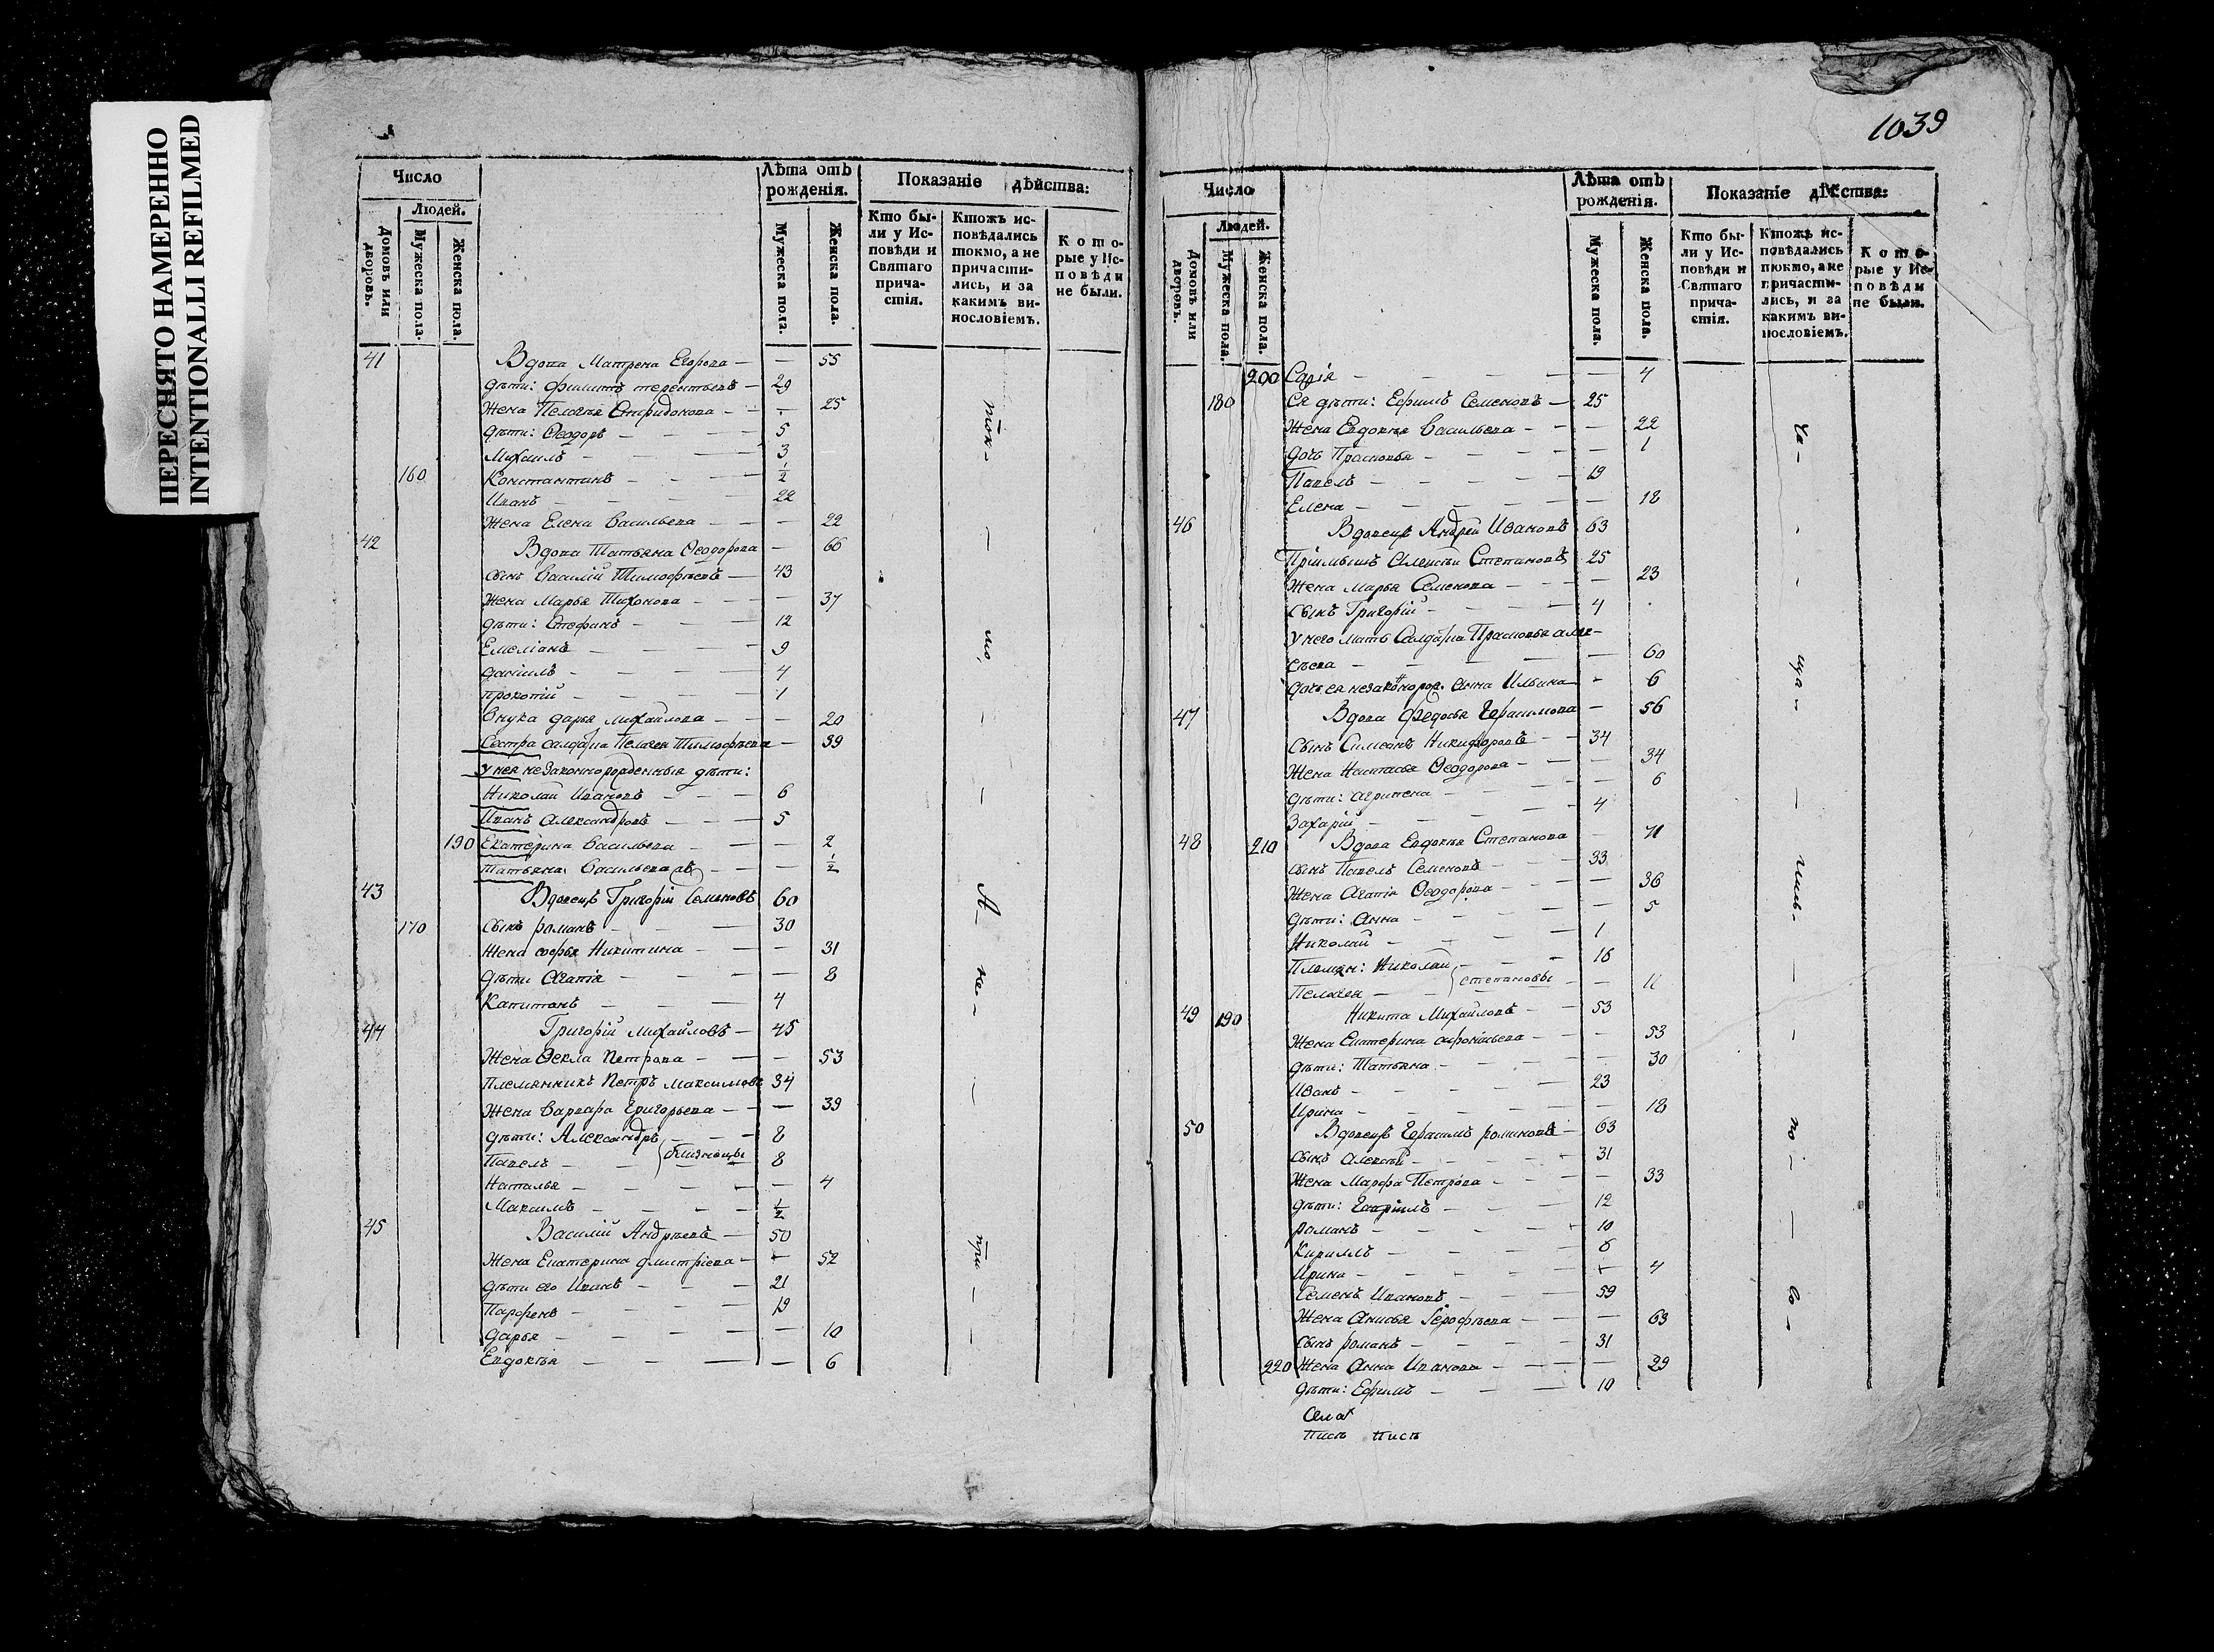 ПЕРЕСНЯТО НАМЕРЕННО
INTENTIONALLI REFILMED
Число
Людей.
Домовъ или дворовъ.
Мужеска пола.
Женска пола.
Лѣта отъ рожденія.
Мужеска пола.
Женска пола.
Показаніе дѣйства:
Кто бы-
ли у Ис-
повѣди и
Святаго
прича-
стія.
Ктожъ ис-
повѣдались
токмо, а не
причасти-
лись, и за
какимъ ви-
нословіемъ.
Кото-
рые у Ис-
повѣди
не были.
41 Вдова Матрена Егорова — — 55
дѣти: Филипъ терентьевъ — 29
Жена Пелагея Спиридонова — — 25
дѣти: Ѳеодоръ — — 5
Михаилъ — — 3
160 Константинъ — — 1/2
Иванъ — — 22
Жена Елена Васильева — — 22
42 Вдова Татьяна Ѳеодорова — 60
сынъ Василій Тимофѣевъ — 43
Жена Марья Тихонова — — 37
дѣти: Стефанъ — — 12
Емеліанъ — — 9
даніилъ — — 4
прокопій — — 1
Внука дарья михайлова — — 20
Сестра салдатка Пелагея Тимофѣева — 39
У нея незаконнорожденныя дѣти:
Николай Ивановъ — — 6
Иванъ Александровъ — — 5
190 Екатерина Васильева — — 2
Татьяна Васильева — — 1/2
43 Вдовецъ Григорій Семеновъ 60
170 сынъ романъ — — 30
Жена софья Никитина — — 31
дѣти Агапія — — 8
Капитонъ — — 4
44 Григорій Михайловъ — 45
Жена Ѳекла Петрова — — 53
племянникъ Петръ максимовъ 34
Жена Варвара Григорьева — — 39
дѣти: Александръ — — 8
Павелъ — близнецы — 8
Наталья — — 4
Максимъ — — 1/2
45 Василій Андрѣевъ — 50
Жена Екатерина дмитріева — — 52
дѣти его Иванъ — — 21
Парфенъ — — 19
дарья — — 10
Евдокія — — 6
ток-
мо,
А-
не-
при-
1039
Число
Людей.
Домовъ или дворовъ.
Мужеска пола.
Женска пола.
Лѣта отъ рожденія.
Мужеска пола.
Женска пола.
Показаніе дѣйства:
Кто бы-
ли у Ис-
повѣди и
Святаго
прича-
стія.
Ктожъ ис-
повѣдались
токмо, а не
причасти-
лись, и за
какимъ ви-
нословіемъ.
Кото-
рые у Ис-
повѣди
не были.
200 Софія — — 4
180 Ея дѣти: Ефимъ Семеновъ — 25
Жена Евдокія Васильева — — 22
дочь Прасковья — — 1
Павелъ — — 19
Елена — — 18
46 Вдовецъ Андрей Ивановъ 63
Пріимышъ Алексѣй Степановъ 25
Жена Марья Семенова — — 23
сынъ Григорій — — 4
У него мать Салдатка Прасковья алек-
сѣева — — 60
дочь ея незаконорож. Анна Ильина — 6
47 Вдова Ѳедосья Герасимова — 56
Сынъ Симеонъ Никифоровъ — 34
Жена Настасья Ѳеодорова — — 34
дѣти: агрипена — — 6
Захарій — — 4
48 210 Вдова Евдокія Степанова — 71
сынъ Павелъ Семеновъ — 33
Жена Агапія Ѳеодорова — — 36
дѣти: Анна — — 5
Николай — — 1
Племян: Николай — — 16
Пелагея — степановы — 11
49 190 Никита Михайловъ — 53
Жена Екатерина афонасьева — — 53
дѣти: Татьяна — — 30
Иванъ — — 23
Ирина — — 18
50 Вдовецъ Герасимъ романовъ — 63
сынъ алексѣй — — 31
Жена Марфа Петрова — — 33
дѣти: Гавріилъ — — 12
романъ — — 10
Кириллъ — — 6
Ирина — — 4
Семенъ Ивановъ — — 59
Жена Анисья Ерофѣева — — 63
сынъ романъ — — 31
220 Жена Анна Иванова — — 29
дѣти: Ефимъ — — 10
ча-
ща-
гиль-
по-
во-